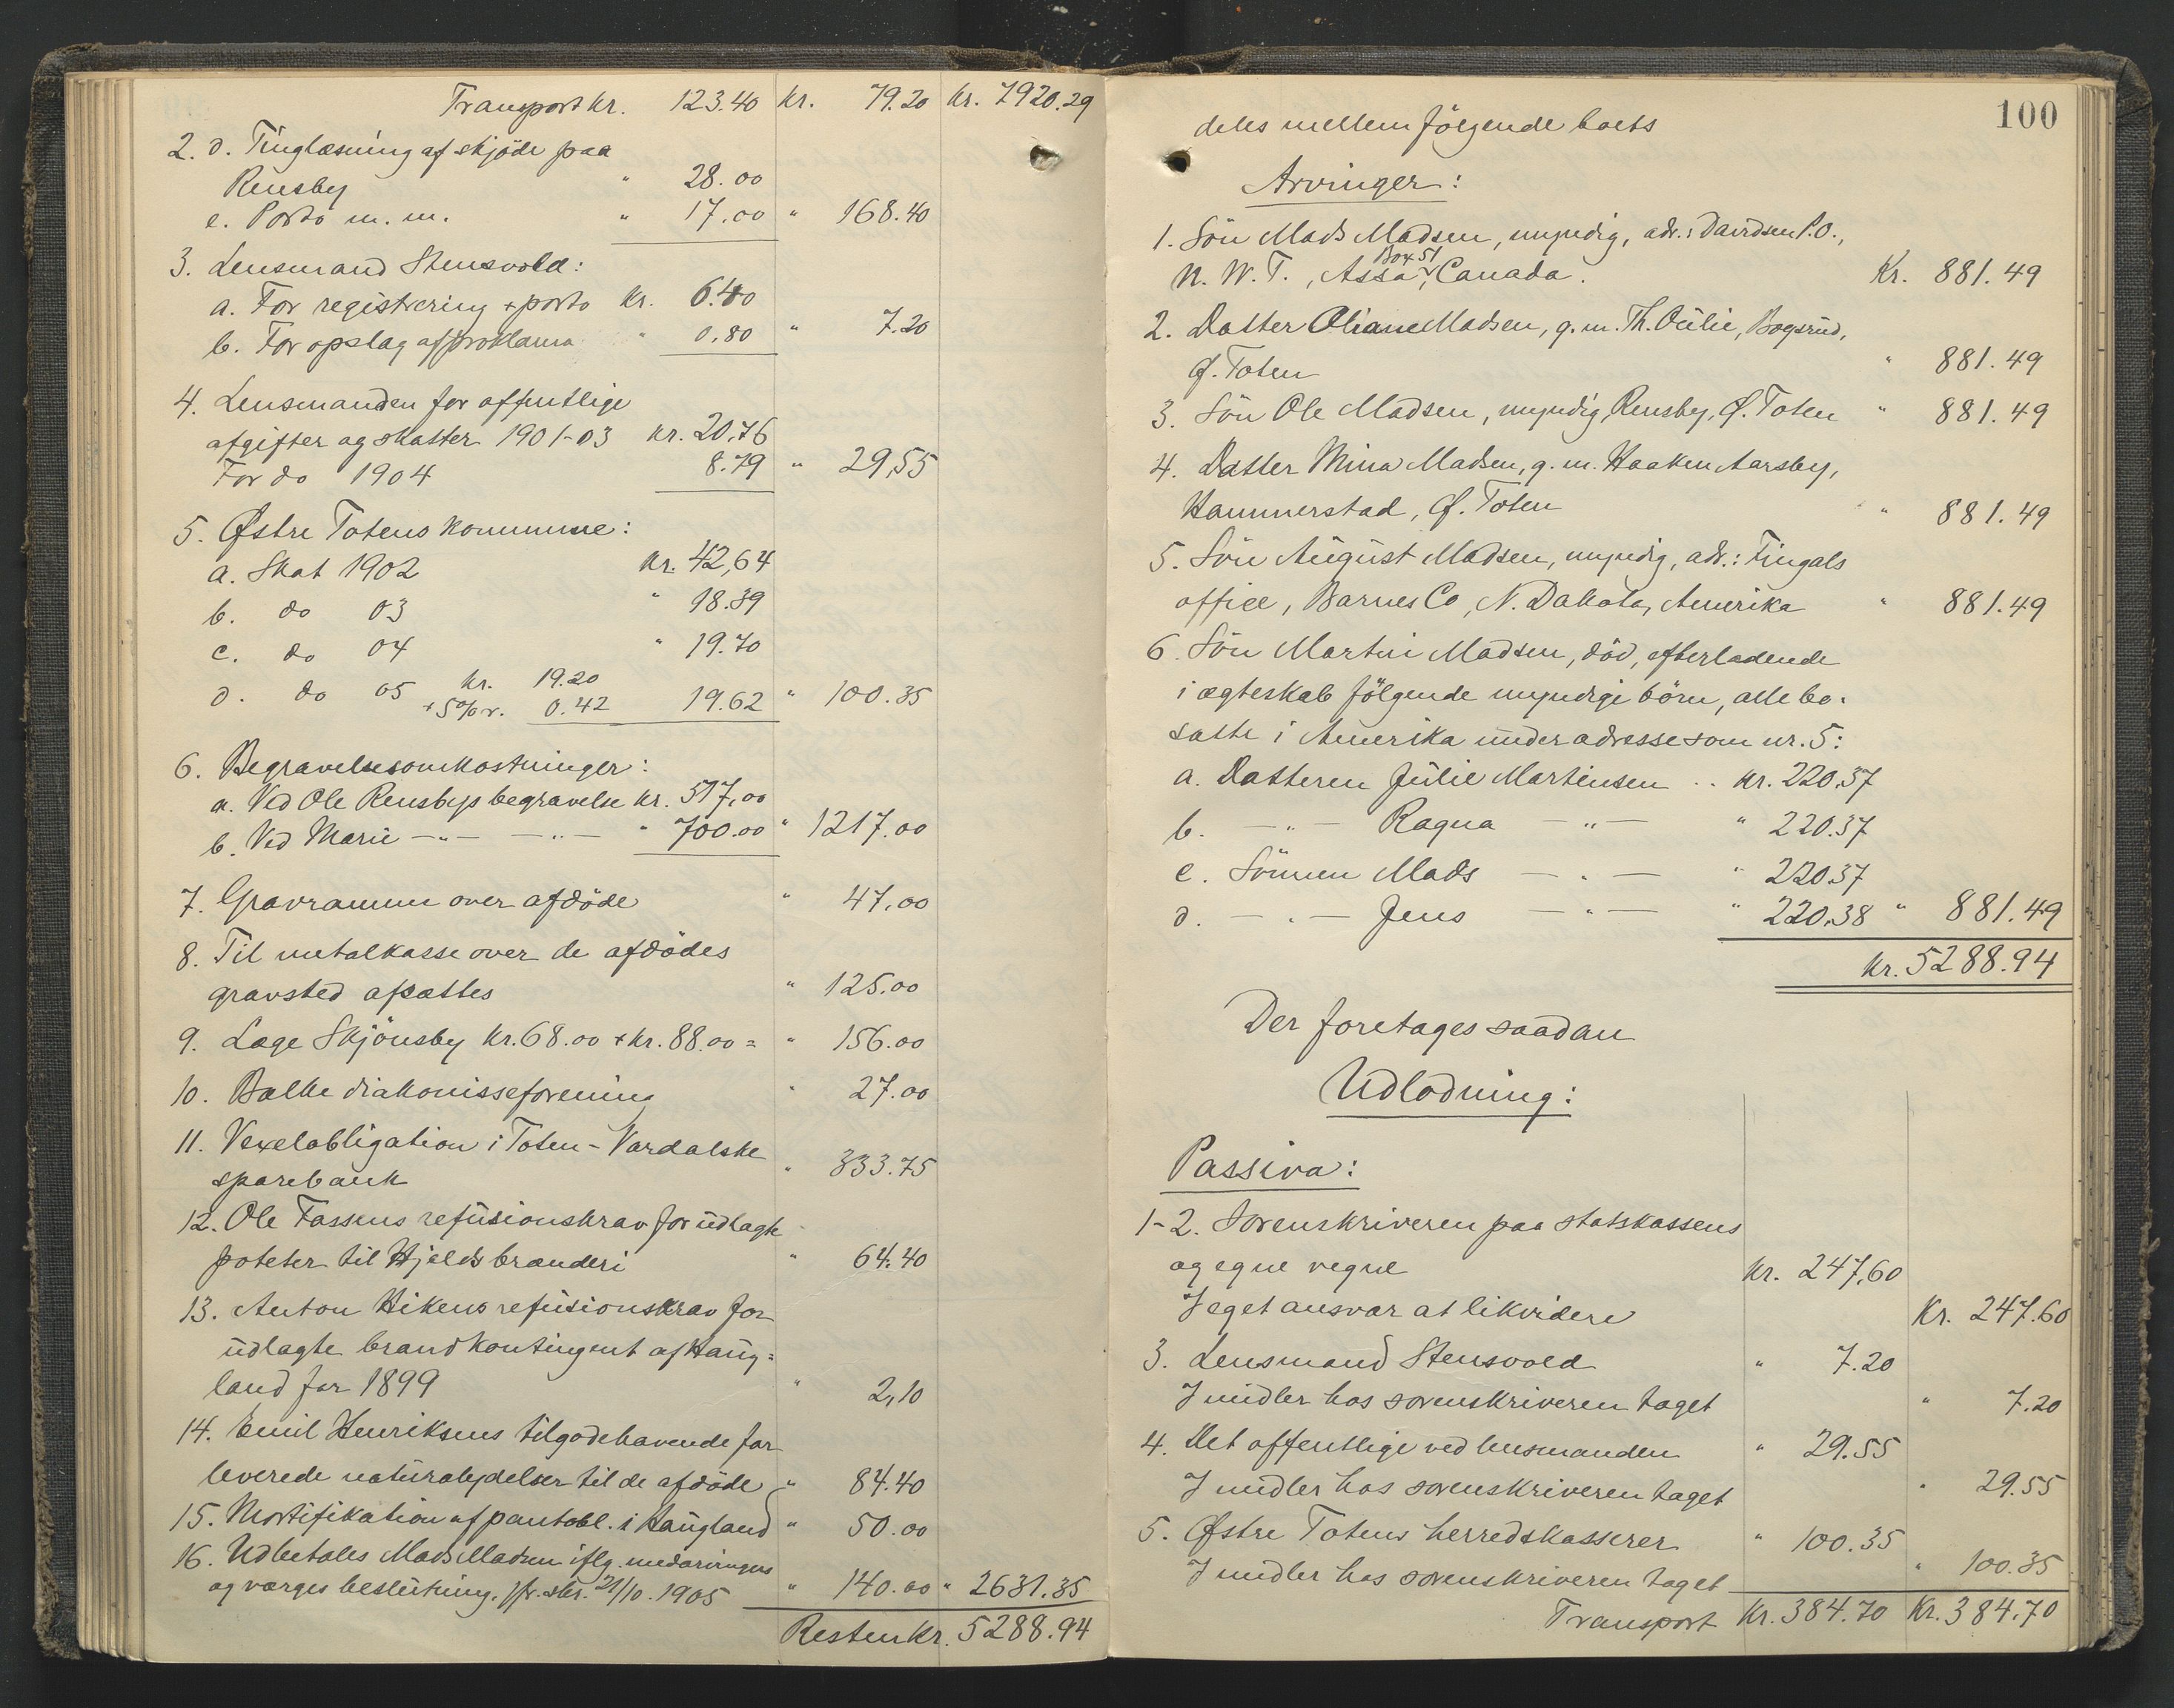 Transport kr. 123.40 kr. 79.20 kr. 7920.29
2. d. Tinglæsning af skjøde paa
Rensby " 28.00
e. Porto m. m. " 17.00 " 168.40
3. Lensmand Stensvold:
a. For registrering + porto kr. 6.40
b. For opslag af proklama " 0.80 " 7.20
4. Lensmanden for offentlige
afgifter og skatter 1901-03 kr. 20,76
For do 1904 8.79 " 29,55
5. Østre Totens kommune:
a. Skat 1902 kr. 42,64
b. do 03 " 18.39
c. do 04 " 19.70
d. do 05 kr. 19.20
+ 5% r. 0.42 19.62 " 100.35
6. Begravelsesomkostninger:
a. Ved Ole Rensbys begravelse kr. 517,00
b. Ved Marie —"— —"— " 700.00 " 1217.00
7. Gravramme over afdøde " 47.00
8. Til metalkasse over de afdødes
gravsted afsættes " 125.00
9. Læge Skjønsby kr. 68.00 + kr. 88.00 = " 156.00
10. Balke diakonisseforening " 27.00
11. Vexelobligation i Toten-Vardalske
sparebank " 333.75
12. Ole Fossens refusionskrav for udlagte
poteter til Hjelds brænderi " 64.40
13. Anton Hikens refusionskrav for
udlagte brandkontingent af Haug=
land for 1899 " 2,10
14. Emil Henriksens tilgodehavende for
leverede naturalydelser til de afdøde " 84.40
15. Mortifikation af pantobl. i Haugland " 50.00
16. Udbetales Mads Madsen iflg. medarvingers
og værges beslutning. jfr. skr. 21/10. 1905 " 140.00 " 2631.35
Resten kr. 5288.94
100
deles mellem følgende boets
Arvinger:
1. Søn Mads Madsen, myndig, adr.: Davidsen P.O.,
Box 51
N. W. T., Assa, Canada. Kr. 881.49
2. Datter Oliane Madsen, g. m. Th. Oulie, Bogsrud,
Ø. Toten " 881.49
3. Søn Ole Madsen, myndig, Rensby, Ø. Toten " 881.49
4. Datter Mina Madsen, g. m. Haaken Aarsby,
Hammerstad, Ø. Toten " 881.49
5. Søn August Madsen, myndig, adr.: Fingals
office, Barnes Co, N. Dakota, Amerika " 881.49
6. Søn Martin Madsen, død, efterladende
i ægteskab følgende myndige børn, alle bo=
satte i Amerika under adresse som nr. 5:
a. Datteren Julie Martinsen .. kr. 220,37
b. —"— Ragna —"— " 220.37
c. Sønnen Mads —"— " 220.37
d. —"— Jens —"— " 220.38 " 881.49
kr. 5288.94
Der foretages saadan
Udlodning:
Passiva:
1-2. Sorenskriveren paa statskassens
og egne vegne kr. 247,60
I eget ansvar at likvidere Kr. 247.60
3. Lensmand Stensvold " 7.20
I midler hos sorenskriveren taget " 7.20
4. Det offentlige ved lensmanden " 29.55
I midler hos sorenskriveren taget " 29.55
5. Østre Totens herredskasserer " 100.35
I midler hos sorenskriveren taget " 100.35
Transport Kr. 384.70 Kr. 384.70